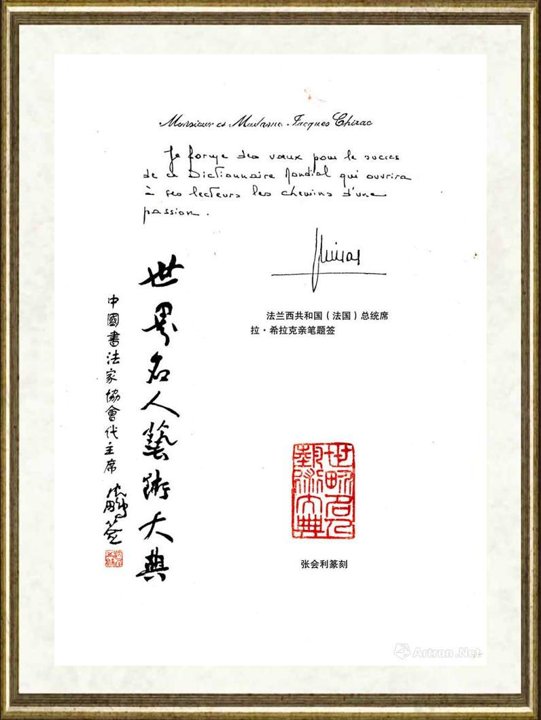 Monsieur et Madame Jacques Chirac
Je forme des vœux pour le succès
de ce Dictionnaire Mondial qui ouvrira
à ses lecteurs les chemins d'une
passion.
法兰西共和国（法国）总统席
拉·希拉克亲笔题签
世界名人藝術大典
中國書法家協會代主席 沈鵬签
世界名人藝術大典
张会利篆刻
Artron.Net